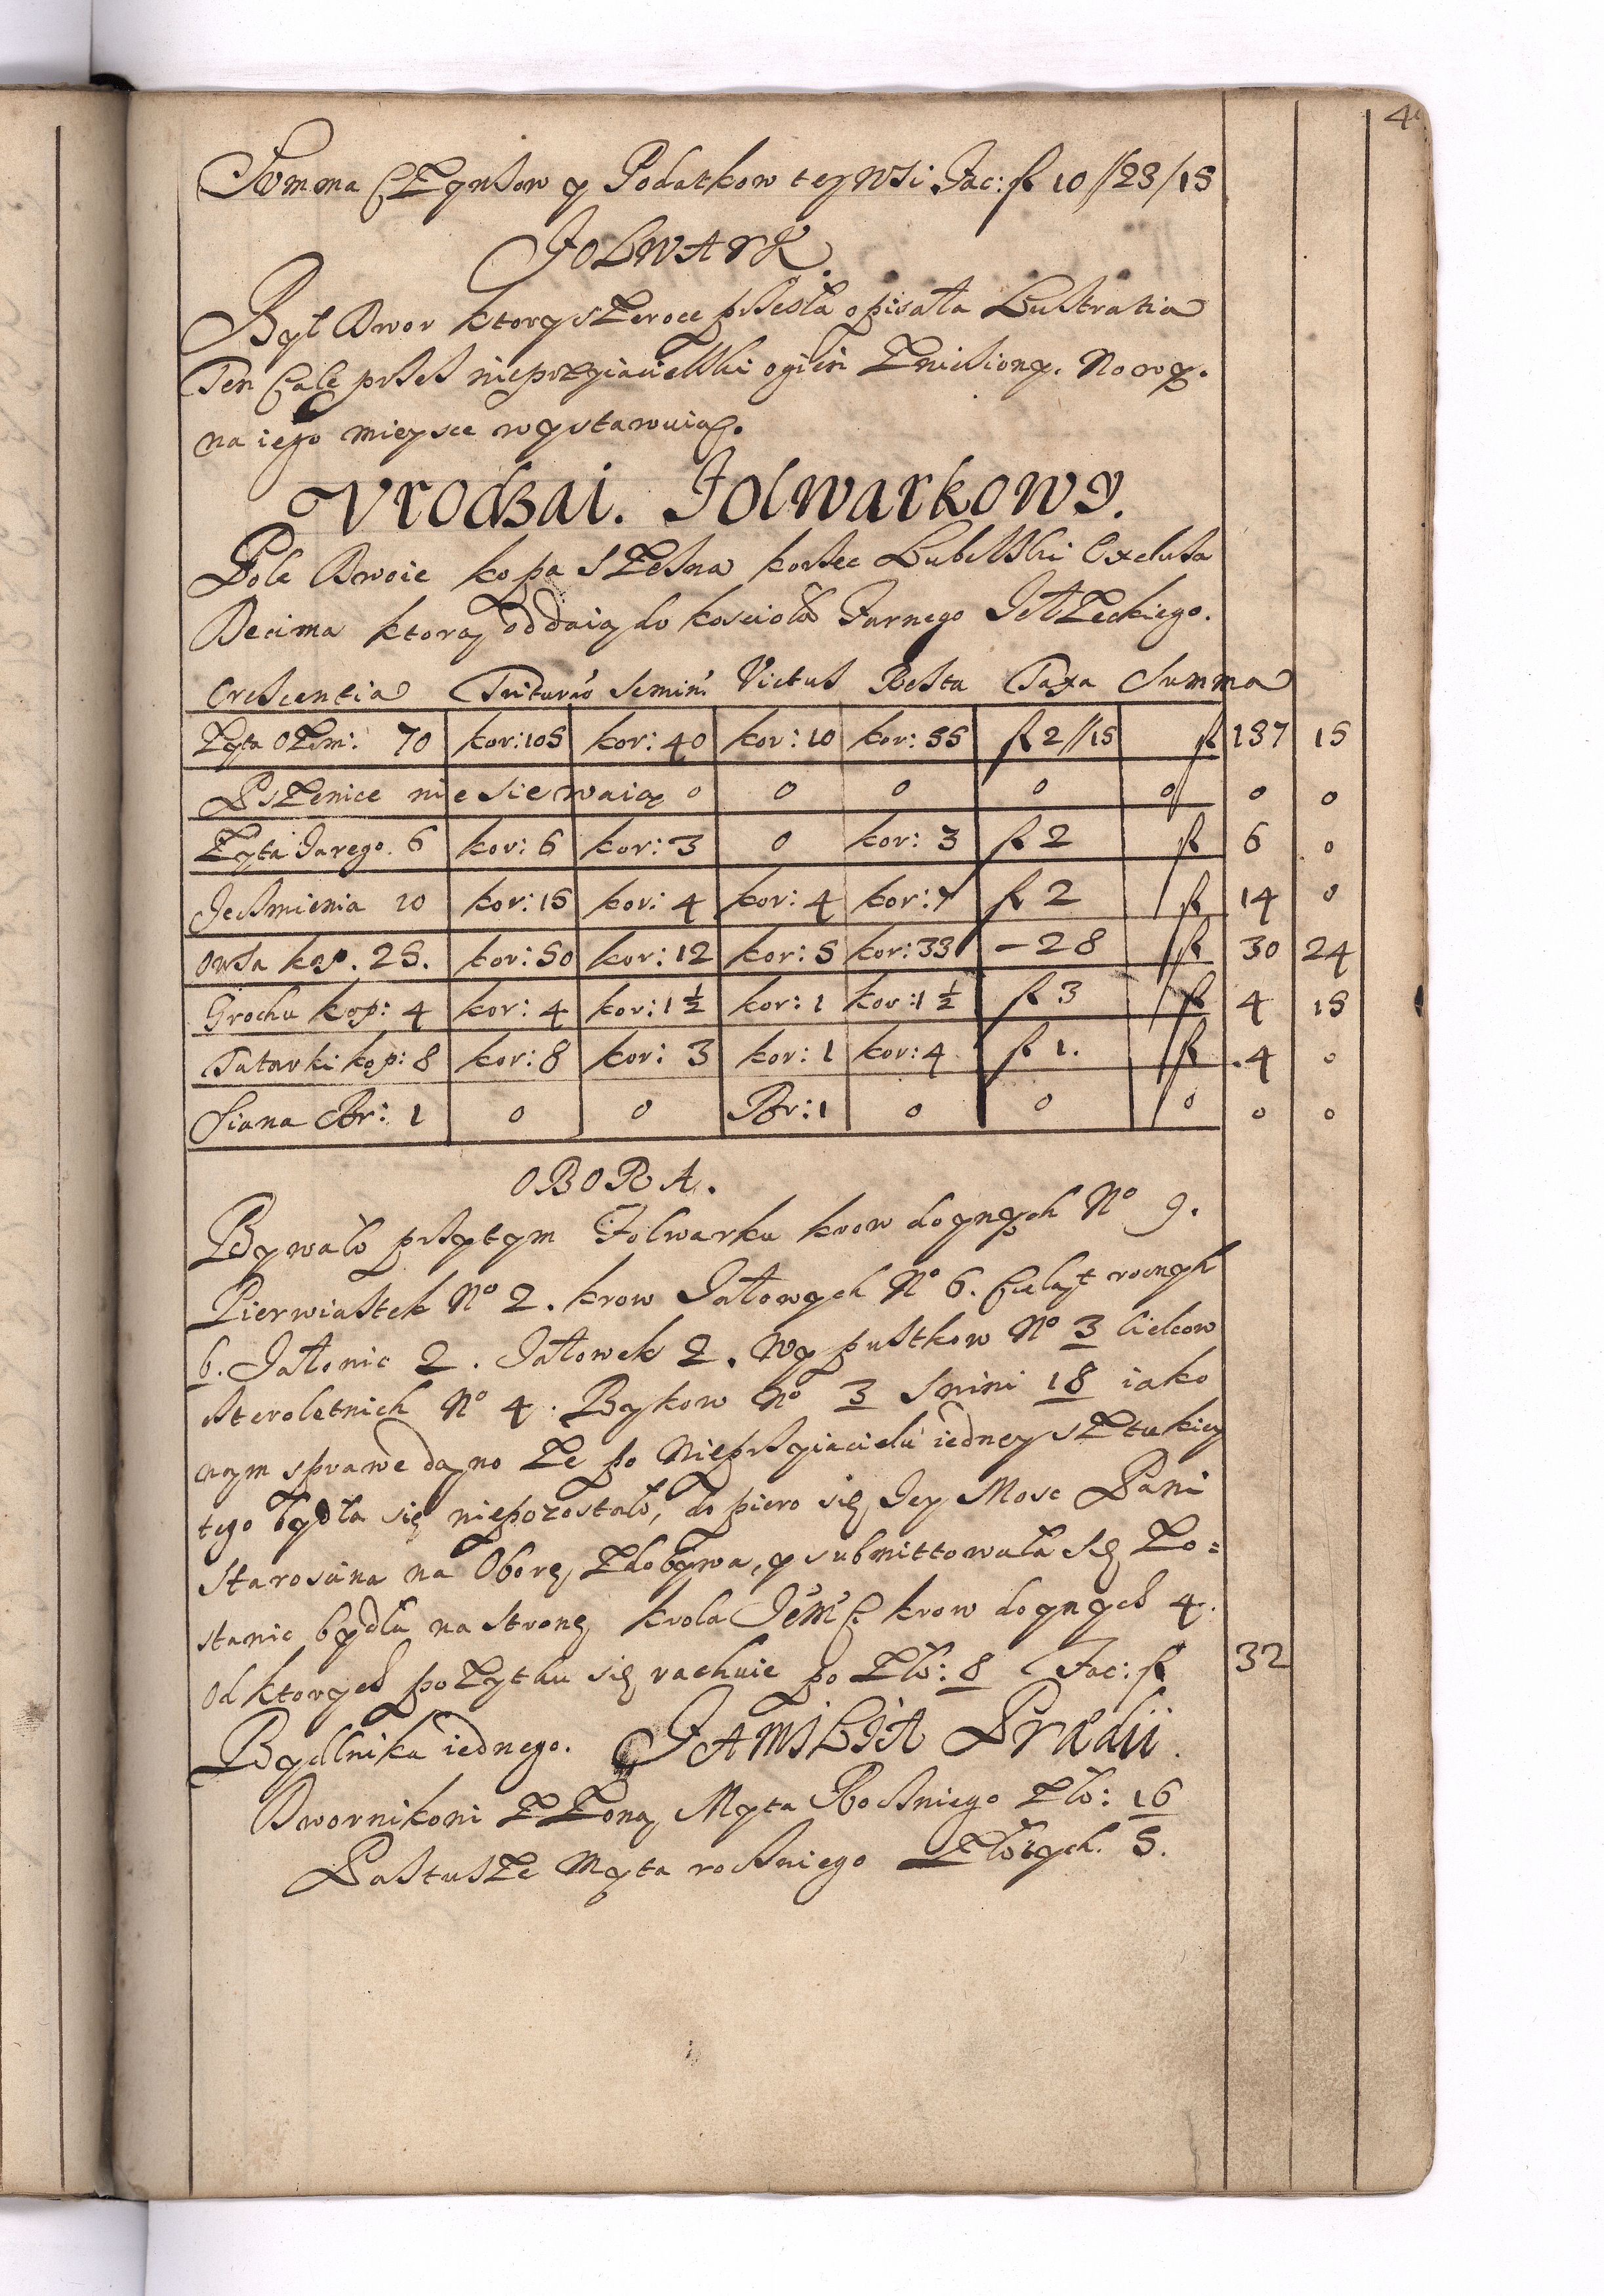 4
Summa Czynszow y Podatkow tey Wsi Fac: fl 10//23/15
FOLWARK
Był Dwor ktory szeroce przeszła opisała Lustratia
Ten Cale przez nieprzyiacielski ogień Zniesiony. Nowy.
na iego mieysce wystawuią.
Vrodzai. Folwarkowy.
Pole Dwoie kopa sżeszna korzec Lubelski Exclusa
Decima ktorą oddaią do kościoła Farnego Jełżeckiego.
Crescentia Triturao Semin: Victus Resta Taxa Summa
Żyta Ozim: 70 kor: 105 kor: 40 kor: 10 kor: 55 fl 2//15 fl 137 15
Pszenice nie siewaią 0 0 0 0 0 0 0
Żyta Jarego. 6 kor: 6 kor: 3 0 kor: 3 fl 2 fl 6 0
Jęczmienia 10 kor: 15 kor: 4 kor: 4 kor: 7 fl 2 fl 14 0
Owsa kop. 25. kor: 50 kor: 12 kor: 5 kor: 33 – 28 fl 30 24
Grochu kop: 4 kor: 4 kor: 1½ kor: 1 kor: 1½ fl 3 fl 4 15
Tatarki kop: 8 kor: 8 kor: 3 kor: 1 kor: 4 fl 1. fl 4 0
Siana Br: 1 0 0 Br: 1 0 0 0 0 0
OBORA.
Bywało przytym Folwarku krow doynych No 9.
Pierwiastek No 2. krow Jałowych No 6. Cieląt rocnych
6. Jałonic 2. Jałowek 2. Wypustkow No 3 Cielcow
szteroletnich No 4. Bykow No 3 Swini 18 iako
nąm sprawę dayno że po Nieprzyiacielu iedney sztukiey
tego bydła się niepozostało, do piero się Jey Mosc Pani
Starościna na Oborę zdobywa, y submittowała się Zo=
stanic bydła na stronę krola Jem C krow doynych 4.
Od ktorych pożytku się rachuie po Zło: 8 Fac: fl 32
Bydlnika iednego. FAMILIA Prædii.
Dwornikowi z Żoną Myta Roczniego zło: 16
Pastusze Myta roczniego Złotych. 5.